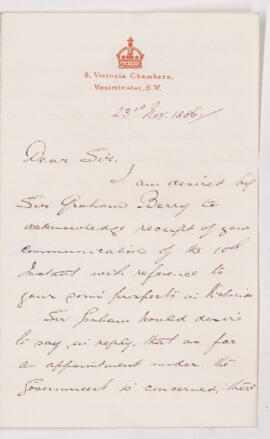 8, Victoria Chambers,
Westminster, S.W.
23rd Nov. 1886
Dear Sir,
I am desired by
Sir Graham Berry to
acknowledge receipt of your
communication of the 10th
Instant with reference to
your son's prospects in Victoria
Sir Graham would desire
to say, in reply, that as far
an appointment under the
Government is concerned, there